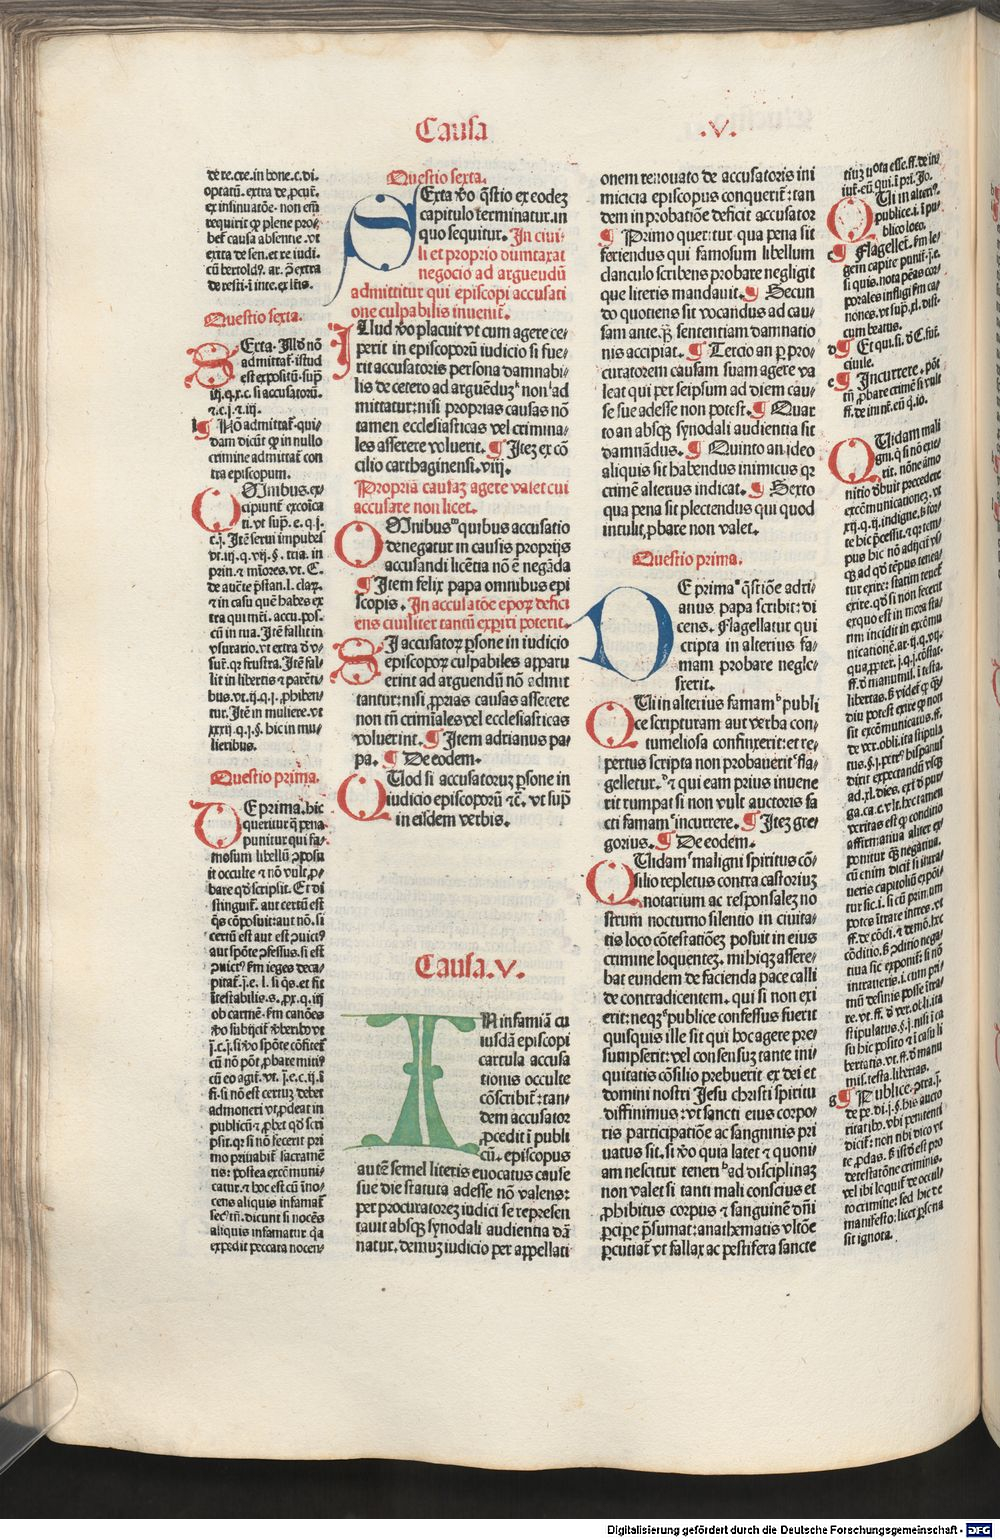 Causa
.V.
de re. cre. in bone. c. di.
optatū. extra de ꝓcut̄.
ex insinuatōe. non em̄
requirit ꝙ plene pro⸗
bet̄ causa absentie. vt
extra de sen. et re iudi.
cū bertold⁹. ar. ꝯ̄ extra
de resti. ī inte. ex lr̄is.
Questio sexta.
Exta. Illd nō
admittat̄. istud
est expositū. sup̄
iij. q. x. c. si accusatorū.
⁊. c. j. ⁊. iij.
Nō admittat̄. qui⸗
dam dicūt ꝙ in nullo
crimine admittat̄ con
tra episcopum.
OMnibus. ex⸗
cipiunt̄ excoica
ti. vt sup̄. e. q. j.
c. j. Itē serui impubes
vt. iij. q. vij. §. tria. in
prin. ⁊ mīores. vt. C.
de aucte p̄stan. l. claꝝ.
⁊ in casu quē habes ex
tra qui mr̄i. accu. pos.
cū in tua. Itē fallit in
vsurario. vt extra d̄ v⸗
suꝝ. qꝛ frustra. Itē fal⸗
lit in libertis ⁊ parēti⸗
bus. vt. ij. q. j. ꝓhiben⸗
tur. Itē in muliere. vt
xxxij. q. j. §. hic in mu⸗
lieribus.
Questio prima.
DE prima. hic
queritur q̄ pena
punitur qui fa⸗
mosum libellū ꝯposu
it occulte ⁊ nō vult ꝓ⸗
bare qd̓ scripsit. Et di
stinguit̄. aut certū est
q̄s cōposuit: aut nō. si
certū est aut est ꝯuict⁹
aut spōte ꝯfessus. si est
ꝯuict⁹ fm leges deca⸗
pitat̄. j. e. l. si q̄s. et fit
ītestabilis. s. ꝓx. q. iij
ob carmē. fm canōes
v̓o subijcit̄ v̓berib⁹ vt
j. c. j. si v̓o spōte cōfitet̄
cū nō pōt ꝓbare miti⁹
cū eo agit̄. vt. j. e. c. ij. ī
fi. si nō est certuꝫ debet
admoneri vt ꝓdeat in
publicū ⁊ ꝓbet qd̓ scri
psit. qꝛ si nō fecerit pri
mo priuabit̄ sacramē
tis: postea excōmuni⸗
catur. ⁊ hoc est cū ino⸗
cens aliquis infamat̄
sec⁹ tn̄. dicunt si nocēs
aliquis infamatur q̄a
expedit peccata nocen⸗
Questio sexta.
SExta v̓o q̄stio ex eodeꝫ
capitulo terminatur. in
quo sequitur. In ciui⸗
li et proprio dumtaxat
negocio ad arguendū
admittitur qui episcopi accusati
one culpabilis inuenit̄.
Illud v̓o placuit vt cum agere ce⸗
perit in episcoporū iudicio si fue⸗
rit accusatoris persona damnabi⸗
lis de cetero ad arguēduꝫ non ad
mittatur: nisi proprias causas nō
tamen ecclesiasticas vel crimina⸗
les asserere voluerit. ¶ Iteꝫ ex cō
cilio carthaginensi. viij.
Propriā causaꝫ agere valet cui
accusare non licet.
OMnibus quibus accusatio
denegatur in causis proprijs
accusandi licētia nō ē negāda
¶ Item felix papa omnibus epi
scopis. In accusatōe epoꝝ defici
ens ciuiliter tantū experiri poterit.
SI accusatoꝝ ꝑsone in iudicio
episcopoꝝ culpabiles apparu
erint ad arguendū nō admit
tantur: nisi ꝓprias causas asserere
non tn̄ crim̄ales vel ecclesiasticas
voluerint. ¶ Item adrianus pa⸗
pa. ¶ De eodem.
QUod si accusatoruꝫ ꝑsone in
iudicio episcoporū ⁊c̄. vt sup̄
in eisdem verbis.
Causa. V.
IN infamiā cu
iusdā episcopi
cartula accusa
tionis occulte
cōscribit̄: tan⸗
dem accusator
ꝓcedit ī publi
cū. episcopus
autē semel literis euocatus cause
sue die statuta adesse nō valens:
per procuratoreꝫ iudici se represen
tauit absqꝫ synodali audientia dā
natur. demuꝫ iudicio per appellati
onem renouato de accusatoris ini
micicia episcopus conquerit̄: tan
dem in probatiōe deficit accusator
¶ Primo queritur qua pena sit
feriendus qui famosum libellum
clanculo scribens probare negligit
que literis mandauit. ¶ Secun
do quotiens sit vocandus ad cau⸗
sam ante qꝫ sententiam damnatio
nis accipiat. ¶ Tercio an ꝑ pro⸗
curatorem causam suam agere va
leat qui per seipsum ad diem cau⸗
se sue adesse non potest. ¶ Quar
to an absqꝫ synodali audientia sit
damnādus. ¶ Quinto an ideo
aliquis sit habendus inimicus qꝛ
crimē alterius indicat. ¶ Sexto
qua pena sit plectendus qui quod
intulit ꝓbare non valet.
Questio prima.
DE prima q̄stiōe adri⸗
anus papa scribit: di
cens. Flagellatur qui
scripta in alterius fa⸗
mam probare negle⸗
xerit.
QUi in alterius famam publi
ce scripturam aut verba con⸗
tumeliosa confinxerit: et re⸗
pertus scripta non probauerit fla⸗
gelletur. ⁊ qui eam prius inuene
rit rumpat si non vult auctoris fa
cti famam incurrere. ¶ Iteꝫ gre⸗
gorius. ¶ De eodem.
QUidam maligni spiritus cō⸗
silio repletus contra castoriuꝫ
notarium ac responsaleꝫ no
strum nocturno silentio in ciuita⸗
tis loco cōtestatiōeꝫ posuit in eius
crimine loquenteꝫ. mihiqꝫ assere⸗
bat eundem de facienda pace calli
de contradicentem. qui si non exi
erit: neqꝫ publice confessus fuerit
quisquis ille sit qui hoc agere pre⸗
sumpserit: vel consensuꝫ tante ini⸗
quitatis cōsilio prebuerit ex dei et
domini nostri Jesu christi spiritu
diffinimus: vt sancti eius corpo⸗
ris participatiōe ac sanguinis pri
uatus sit. si v̓o quia latet ⁊ quoni⸗
am nescitur teneri ad disciplinaꝫ
non valet si tanti mali conscius et
ꝓhibitus corpus ⁊ sanguinē dn̄i
ꝑcipe p̄sumat: anathematis vltōe
ꝑcutiat̄ vt fallax ac pestifera sancte
tiuꝫ nota esse. ff. de in⸗
iur. eū qui. ī pri. Jo.
QUi in alteri⁹.
publice. i. ī pu⸗
blico loco.
¶ Flagellet̄. fm le⸗
gem capite punit̄. j. e.
si quis. nota penas cor⸗
porales infligi fm ca⸗
nones. vt sup̄. xl. dist.
cum beatus.
¶ Et qui. si. d̓ C. sui.
ciuile.
¶ Incurrere. pōt
tn̄ ꝓbare crimē si vult
ff. de iniur. eū q. io.
QUidam mali
gni. q. si nō exie⸗
rit. nōne āmo
nitio d̓buit precedere
excōmunicationeꝫ. vt
xij. q. ij. indigne. ⁊ for⸗
te hic p̄cessit. ⁊ qꝛ tem⸗
pus hic nō adijcit̄ vs⸗
qꝫ ad qd̓ tēpus tenea⸗
tur exire: statim tenet̄
exire. qd̓ si non fecerit
ex quo est in mora sta⸗
tim incidit in excōmu
nicationē.
libertas.
diu potest exire ꝙ non
sit excōmunicatus. ff.
de ver. obli. ita stipula
tus. §. j. ꝑete⁹ hispanus
dixit expectandū vsqꝫ
ad. xl. dies. ext̄ d̓ pur⸗
ga. ca. c. vlt. hec tamen
veritas est ꝙ conditio
affirmatiua aliter ex⸗
ponitur qꝫ negatiua.
cū enim dicit̄ si intra⸗
ueris capitoliū exponi⸗
tur sic. i. si cū primum
potes ītrare intres. vt
ff. de cōdi. ⁊ demō. hec
cōditio. ⁊ ꝯditio nega⸗
tiua sic exponit̄: si nō
intraueris. i. cum pri⸗
mū desinis posse ītra⸗
re. vt. ff. d̓ ver. ob. l. ita
stipulatus. §. j. nisi ī ca
su hic posito ⁊ ī casu li
bertatis. vt. ff. d̓ manu
mis. testa. libertas.
¶ Publice. ꝯtra. j.
de pe. di. j. §. his aucto
ritatibꝰ. vbi penitenti
dicit̄: non tibi dico vt
te ꝓdas. ⁊ istd̓ est pro
detestatōne criminis.
vel ibi loquit̄ de occul
to crimine: sed hic de
manifesto: licet ꝑsona
sit ignota.
Digitalisierung gefördert durch die Deutsche Forschungsgemeinschaft - DFG